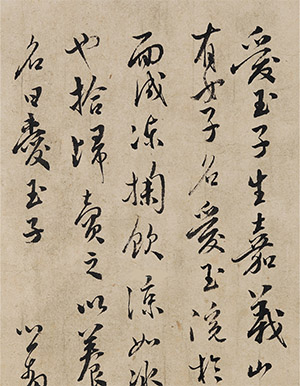 愛玉子生嘉義山
有女子名愛玉浣於
而成冻掬飲涼如冰
也拾歸賣之以養
名曰愛玉子